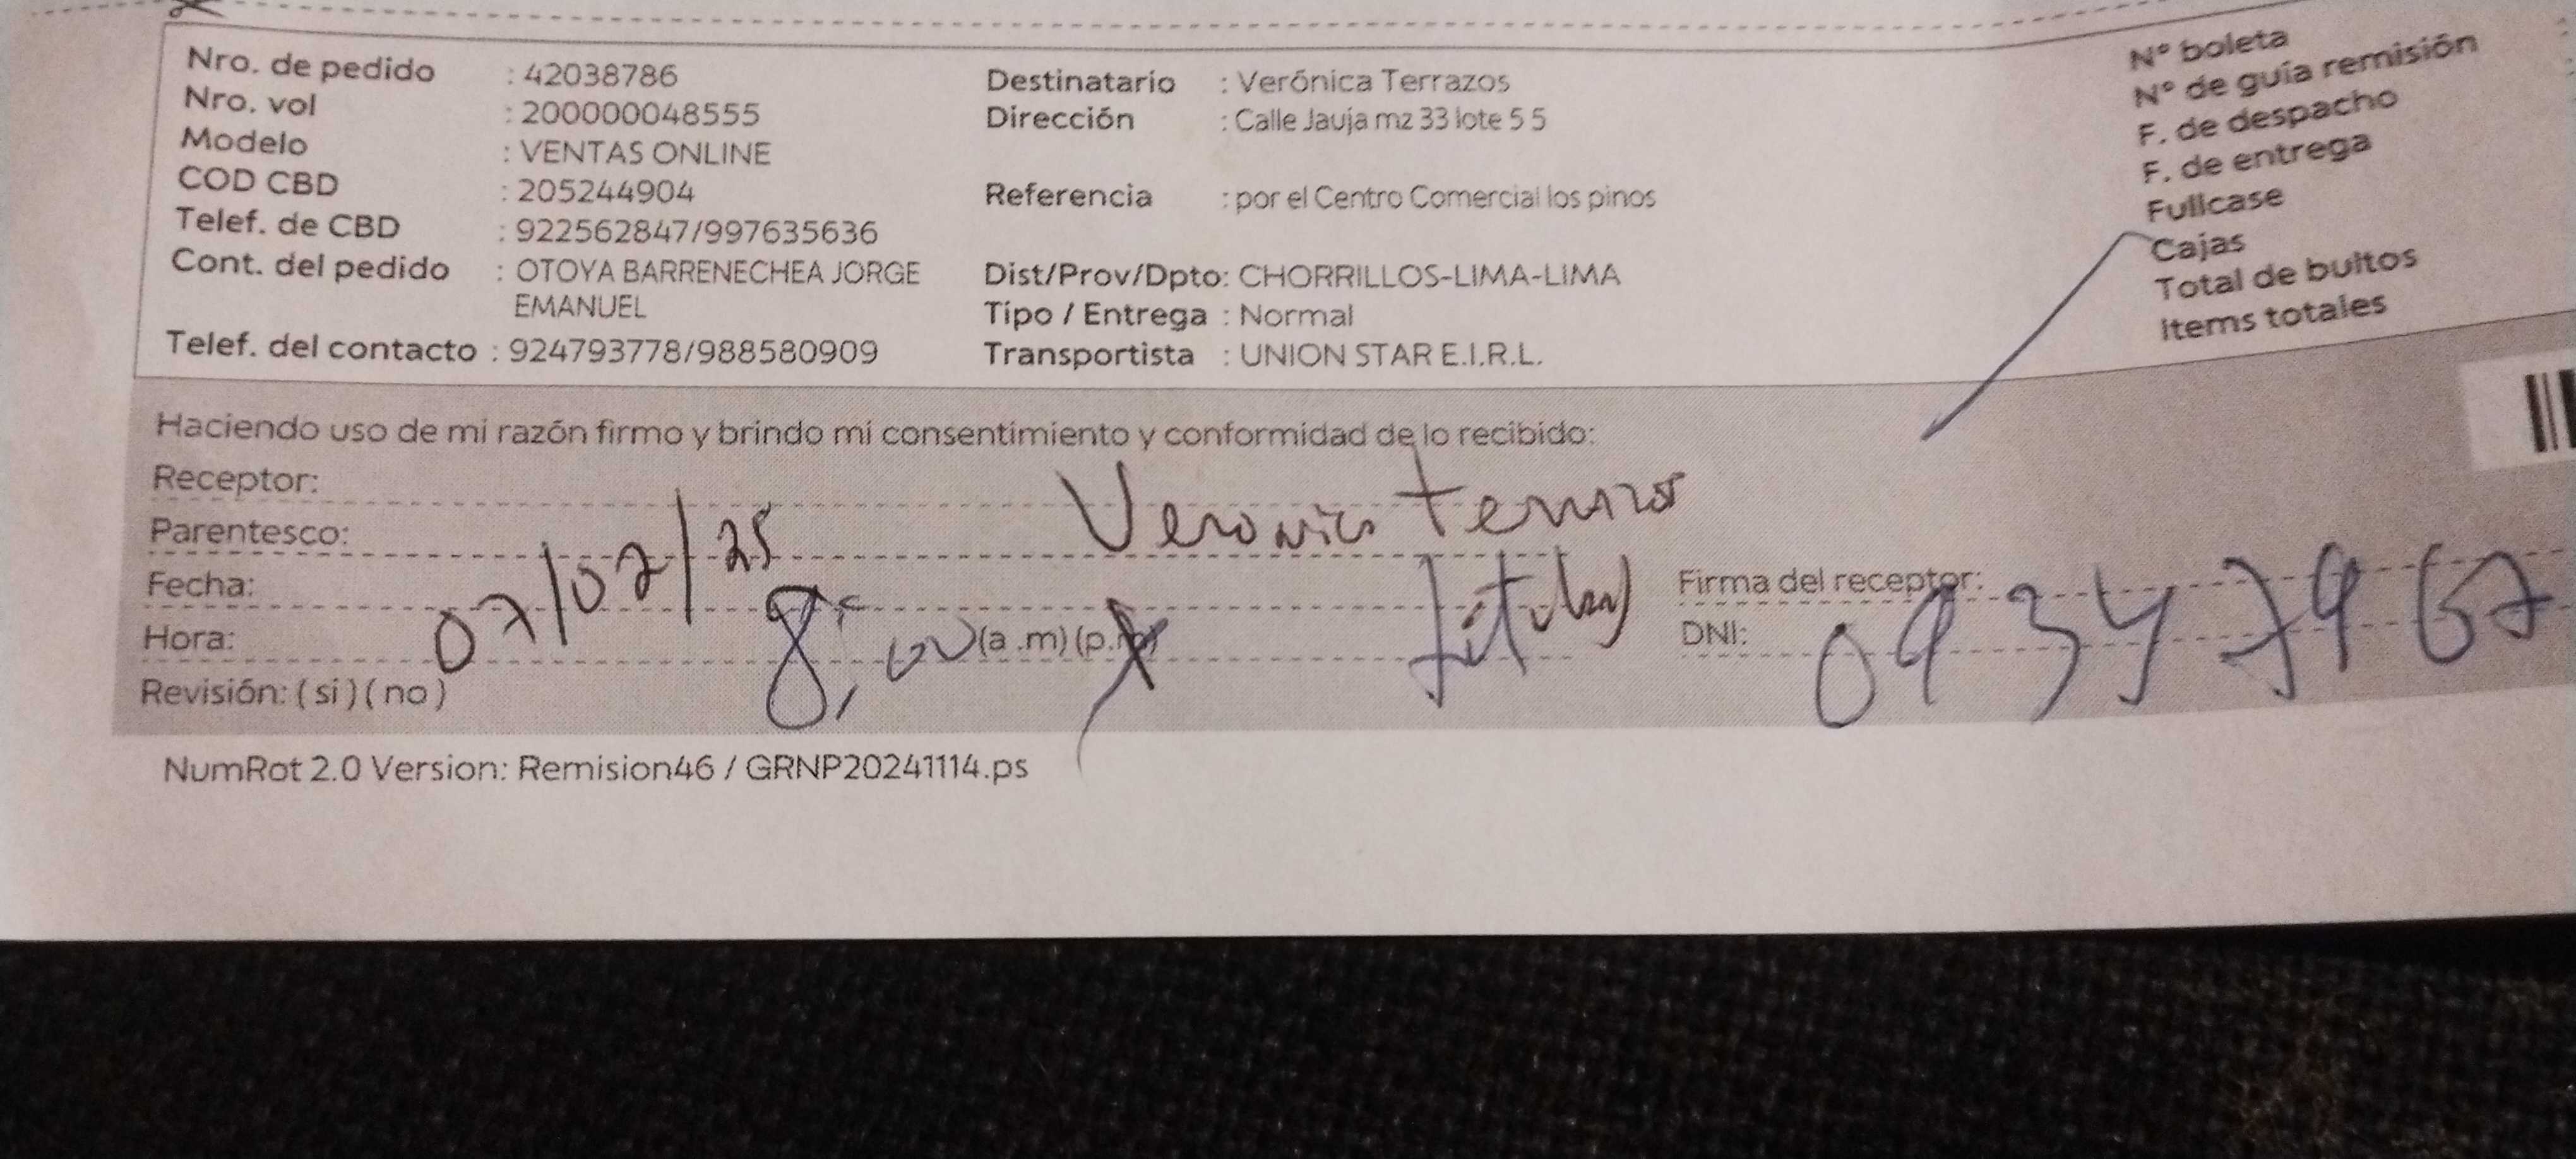 Nro. de pedido : 42038786
Nro. vol : 200000048555
Modelo : VENTAS ONLINE
COD CBD : 205244904
Telef. de CBD : 922562847/997635636
Cont. del pedido : OTOYA BARRENECHEA JORGE
EMANUEL
Telef. del contacto : 924793778/988580909
Destinatario : Verónica Terrazos
Dirección : Calle Jauja mz 33 lote 5 5
Referencia : por el Centro Comercial los pinos
Dist/Prov/Dpto: CHORRILLOS-LIMA-LIMA
Tipo / Entrega : Normal
Transportista : UNION STAR E.I.R.L.
N° boleta
N° de guía remisión
F. de despacho
F. de entrega
Fullcase
Cajas
Total de bultos
Items totales
Haciendo uso de mi razón firmo y brindo mi consentimiento y conformidad de lo recibido:
Receptor: Veronica terrazos
Parentesco: titular
Fecha: 07/02/25
Hora: 8:00 (a .m) (p.m)
Revisión: ( si ) ( no )
Firma del receptor:
DNI: 09347967
NumRot 2.0 Version: Remision46 / GRNP20241114.ps